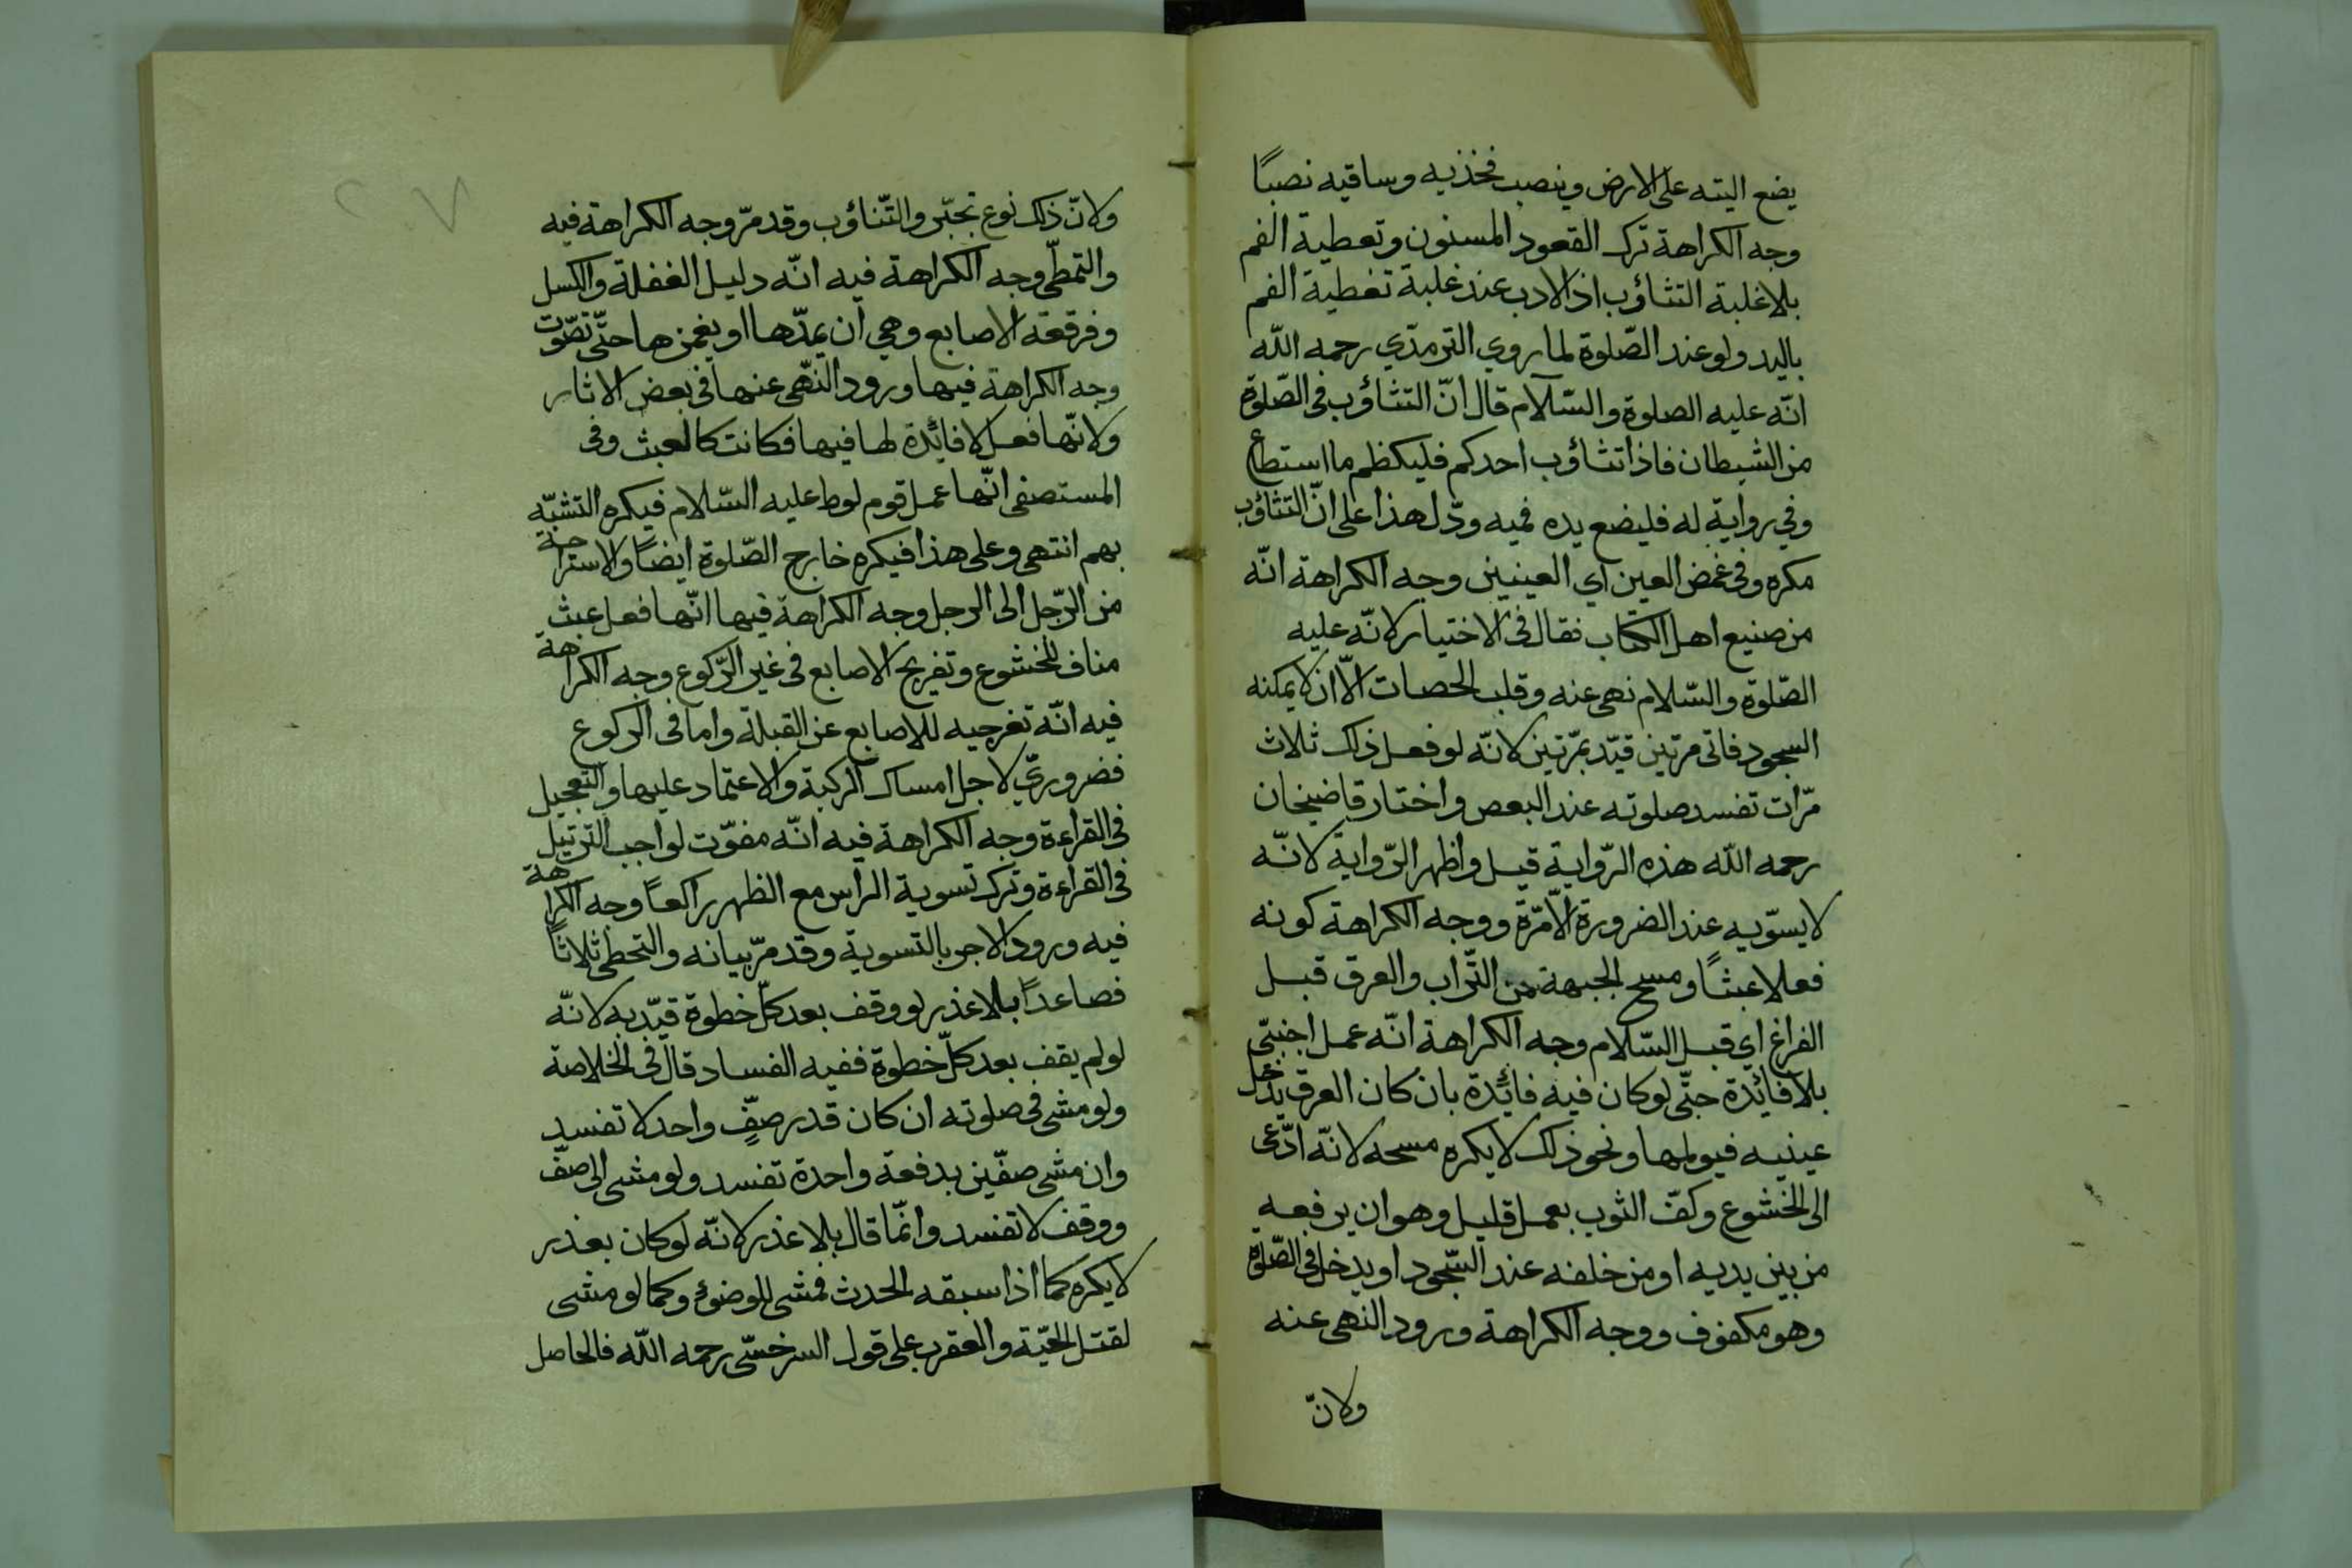 يضع اليته على الارض وينصب فخذيه وساقيه نصبًا
وجه الكراهة ترك القعود المسنون وتعطية الفم
بلا غلبة التثاؤب اذ الادب عند غلبة تغطية الفم
باليد ولو عند الصّلوة لما روي الترمذي رحمه اللّه
انّه عليه الصلوة والسّلام قال انّ التثاؤب فى الصّلوة
من الشيطان فاذا تثاؤب احدكم فليكظم ما استطاع
وفي رواية له فليضع يده فميه ودّل هذا على انّ التثاؤب
مكره وفى غمض العين اي العينين وجه الكراهة انّه
من صنيع اهل الكتاب نقال فى الاختيار لانّه عليه
الصّلوة والسّلام نهى عنه وقلب الحصات الّا ان لا يمكنه
السجود فاتى مرتين قيّد بمرّتين لانّه لو فعل ذلك ثلاث
مرّات تفسد صلوته عند البعص واختار قاضيخان
رحمه اللّه هذه الرّواية قيل واظهر الرّواية لانّه
لا يسوّيه عند الضرورة الّا مرّة ووجه الكراهة كونه
فعلا عبثًا ومسح الجبهة من التّراب والعرق قبل
الفراغ اي قبل السّلام وجه الكراهة انّه عمل اجنبّى
بلا فائدة حتّى لو كان فيه فائدة بان كان العرق يدخل
عينيه فيولمها ونحو ذلك لا يكره مسحه لانّه ادّعى
الى الخشوع وكفّ الثوب بعمل قليل وهو ان يرفعه
من بين يديه او من خلفه عند السّجود او يدخل فى الصّلوة
وهو مكفوف ووجه الكراهة ورود النهى عنه
ولانّ
ولانّ ذلك نوع تجبّر والتّثاؤب وقد مرّ وجه الكراهة فيه
والتمطّى وجه الكراهة فيه انّه دليل الغفلة والكسل
وفرقعة الاصابع وهي ان يمدّها او يغمزها حتّى تصّوت
وجه الكراهة فيها ورود النّهى عنها فى بعض الاثار
ولانّها فعل لا فائدة لها فيها فكانت كالعبث وفى
المستصفى انّها عمل قوم لوط عليه السّلام فيكره التشبّه
بهم انتهى وعلى هذا فيكره خارج الصّلوة ايضًا والاستراحة
من الرّجل الى الرجل وجه الكراهة فيها انّها فعل عبث
مناف للخشوع وتفريج الاصابع فى غير الرّكوع وجه الكراهة
فيه انّه تغرجيه للاصابع عن القبلة واما فى الركوع
فضروريّ لاجل امساك الركبة والاعتماد عليها والتعجيل
فى القراءة وجه الكراهة فيه انّه مفوّت لواجب الترتيل
فى القراءة وترك تسوية الراس مع الظهر راكعًا وجه الكراهة
فيه ورود الامر بالتسوية وقد مرّ بيانه والتحطى ثلاثًا
فصاعدًا بلا عذر لو وقف بعد كلّ خطوة قيّد به لانّه
لو لم يقف بعد كلّ خطوة ففيه الفساد قال فى الخلاصة
ولو مشى فى صلوته ان كان قدر صفٍّ واحد لا تفسد
وان مشى صفّين بدفعة واحدة تفسد ولو مشى الى صفّ
ووقف لا تفسد وانّما قال بلا عذر لانّه لو كان بعذر
لا يكره كما اذا سبقه الحدث فمشى للوضوء وكما لو مشى
لقتل الحيّة والعقرب على قول السرخسّى رحمه اللّه فالحاصل